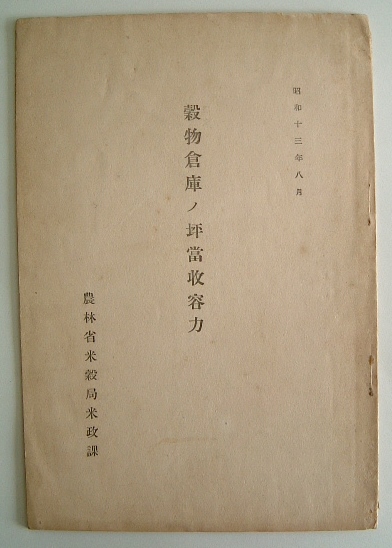 昭和十三年八月
穀物倉庫ノ坪當收容力
農林省米穀局米政課